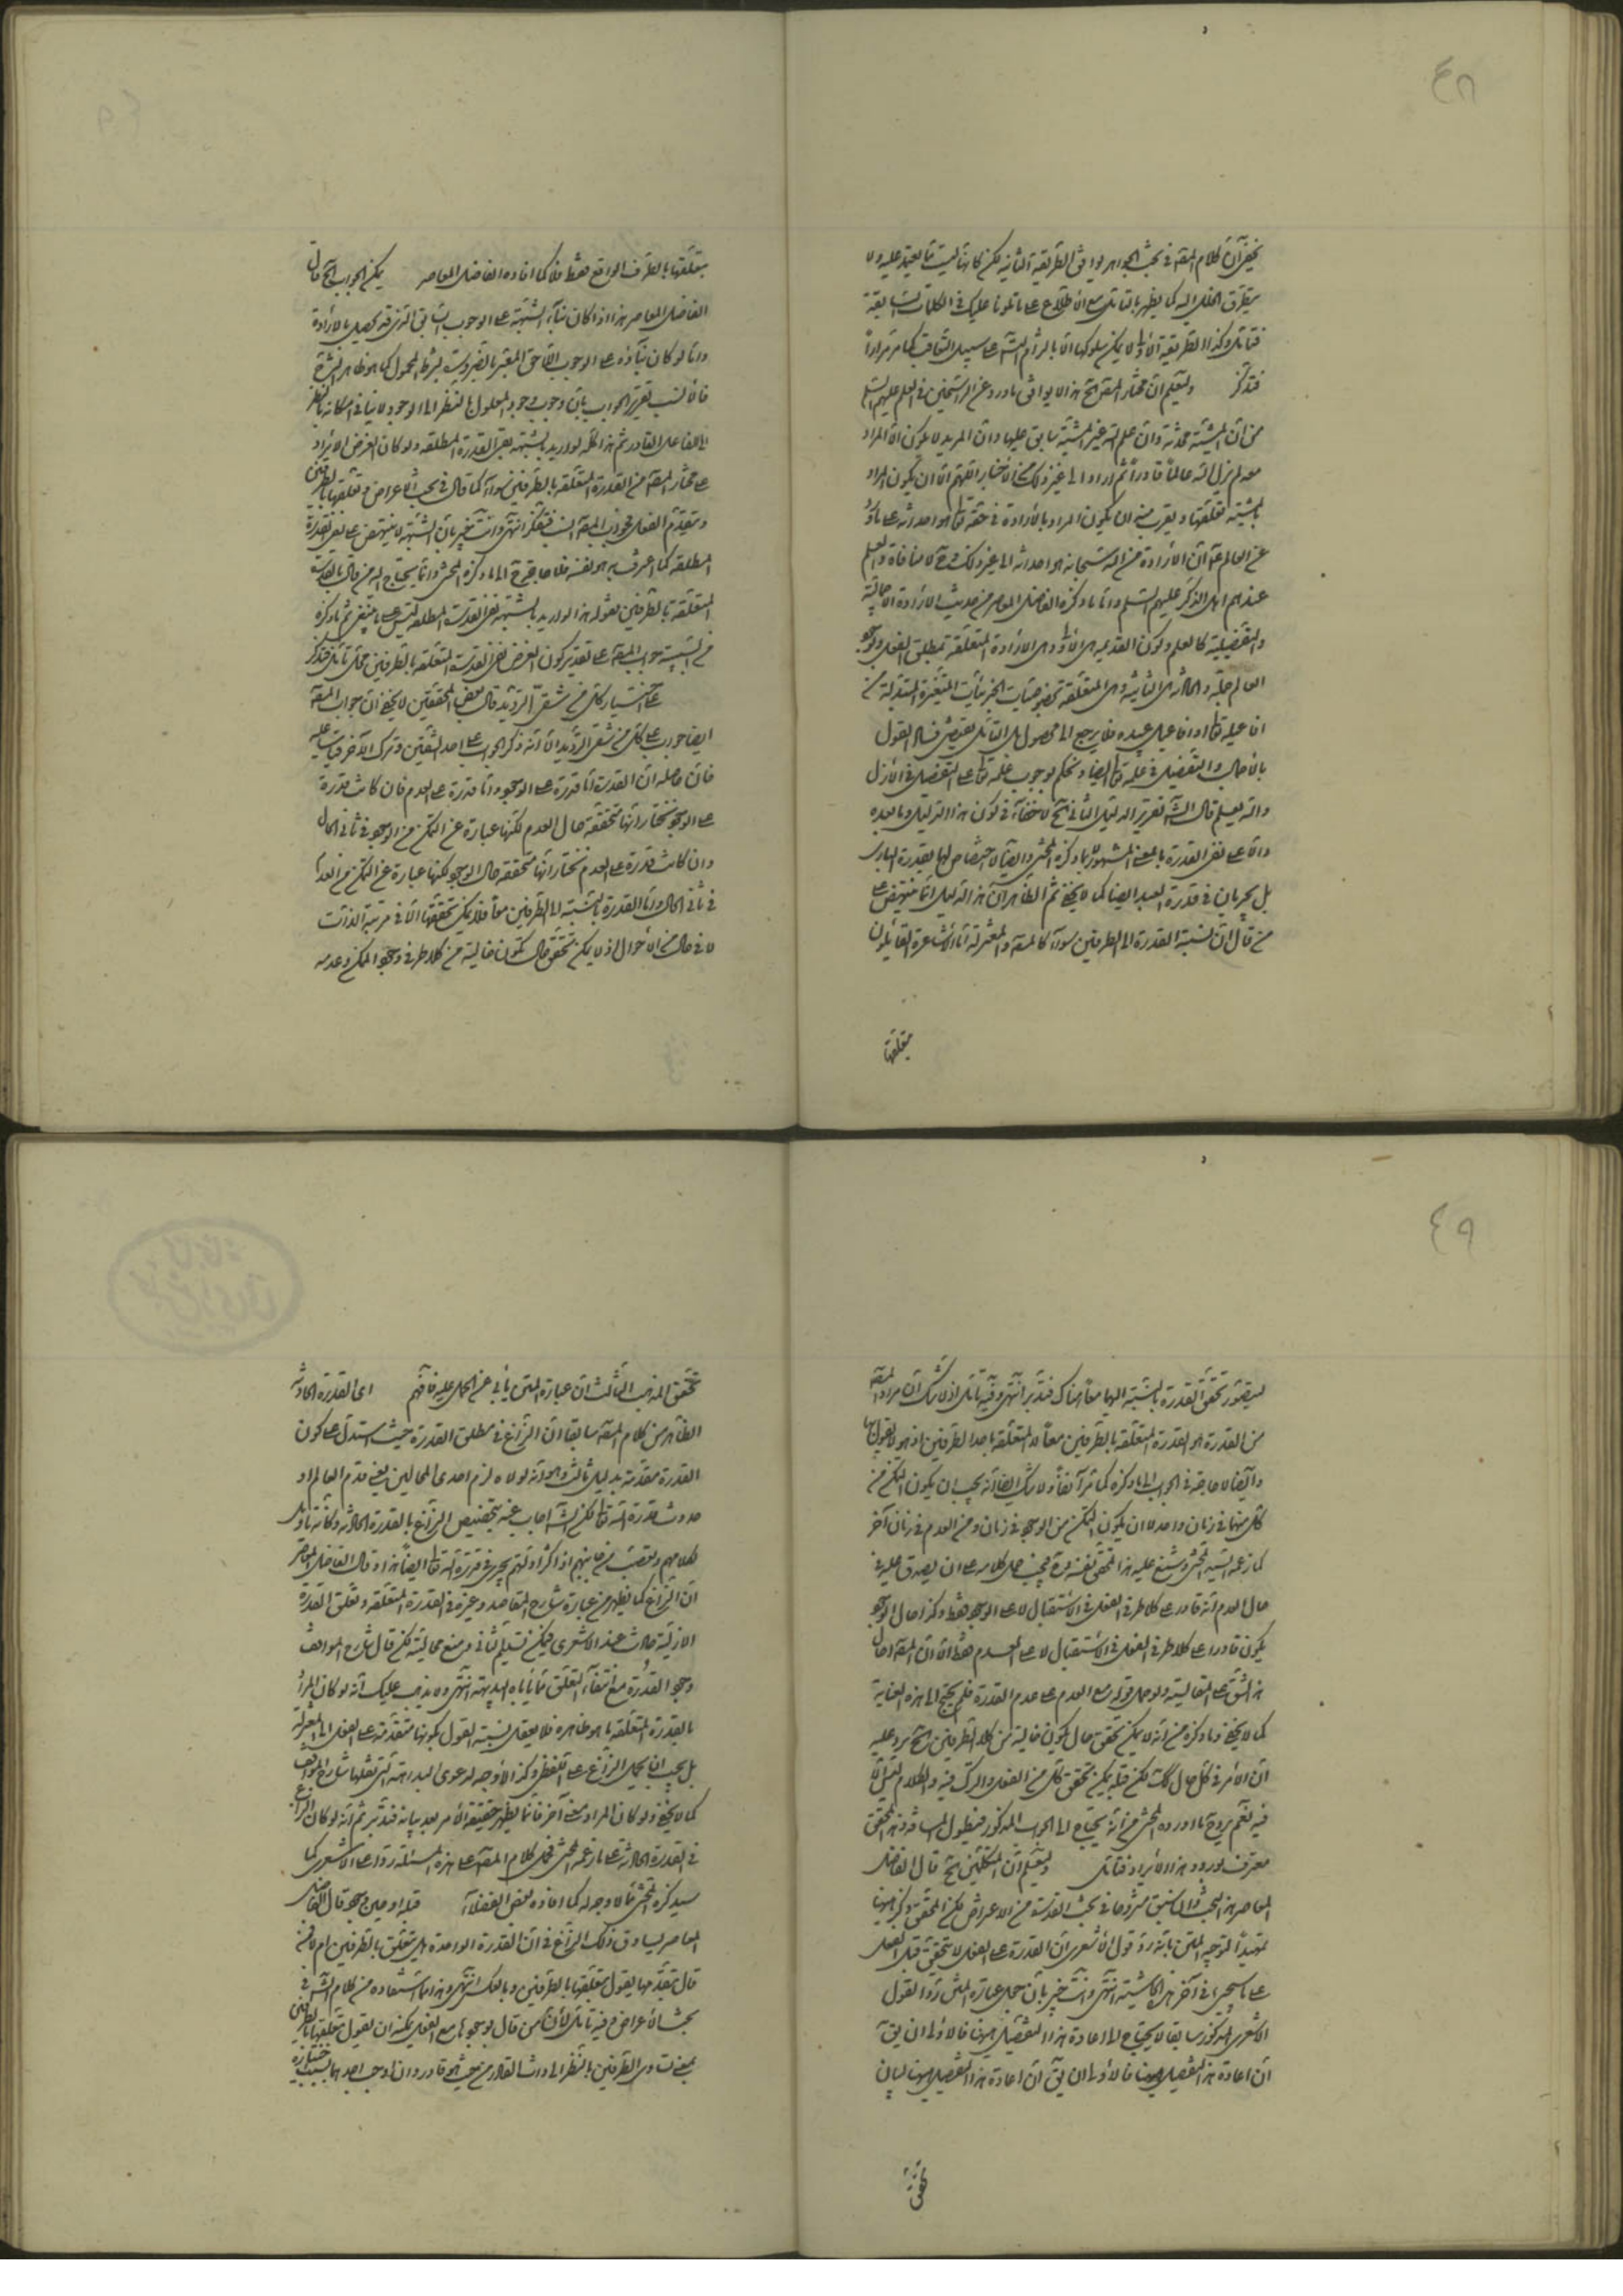 ٤٨
يخفى أنّ كلام المصّ فى بحث الجواهر يوافق الطريقة الثانية لكن كانها ليست مما يعتمد عليه ولا
يتطرق الخلل اليه كما يظهر بالتامّل مع الاطلاع على ما تلونا عليك فى الكلمات السابقة
فتأمل وكذا الطريقة الاولى لا يمكن سلوكها الّا بالزام على سبيل التعاقب كما مرّ مراراً
فتذكّر وليعلم انّ مختار المصّ ح هذا لا يوافق ما ورد عن الراسخين فى العلم عليهم السّلم
من أنّ المشيّة محدثة وانّ علم الله غير المشيّة سابق عليها وانّ المريد لا يكون الّا لمراد
معه لم يزل الله عالماً قادراً ثم اراد الى غير ذلك من الاخبار اللّهمّ الّا ان يكون المراد
بالمشيّة تعلّقها ويقرب منه ان يكون المراد بالارادة فى حقّه تعالى هو احداثه على ما
عن العالم انّ الارادة من الله سبحانه هو احداثه الى غير ذلك وح لا منافاة والعلم
عندهم اهل الذكر عليهم السّلم وامّا ما ذكره الفاضل المعاصر من حديث الارادة الاجمالية
والتفصيلية كالعلم ولكون القديمة هى الاولى وهى الارادة المتعلّقة بمطلق الفعل ولوجود
العالم جملة والحادثة هى الثانية وهى المتعلّقة بخصوصيات الجزئيات المتغيرة المتبدلة من
افاعيله تعالى او افاعيل عبيده فلا يرجع الى محصول بل التأمّل يقتضى فساد القول
بالاجمال والتفصيل فى علمه تعالى ايضا ويحكم بوجوب علمه تعالى على التفصيل فى الازل
والله يعلم قال الشّه تقرير الدليل الثانى ح لا خفاء فى كون هذا الدليل وما بعده
دالّا على نفى القدرة بالمعنى المشهور لا بما ذكره المحشى وايضاً لا اختصاص لها بقدرة البارى
بل يجريان فى قدرة العبد ايضا كما لا يخفى ثم الظاهر انّ هذا الدليل انّما ينتهض على
من قال انّ نسبة القدرة الى الطرفين سواء كالمصّه والمعتزلة امّا الاشاعرة القائلون
بتعلّقها
بتعلّقها بالطرف الواقع فقط فلا كما افاده الفاضل المعاصر يمكن الجواب ح قال
الفاضل المعاصر هذا اذا كان بناء الشبهة على الوجوب السابق الذى قد يحصل بالارادة
وامّا لو كان بناؤه على الوجوب اللّاحق المعبّر بالضرورة بشرط المحمول كما هو ظاهر الشرح
فالأنسب تقرير الجواب بانّ وجوب وجود المعلول بالنظر الى الوجود لا ينافى امكانه بالنظر
الى الفاعل القادر ثم هذا كلّه لو اريد بالشبهة نفى القدرة المطلقة ولو كان الغرض الايراد
على مختار المصّه من القدرة المتعلّقة بالطرفين سواء كما قال فى بحث الاعراض وتعلّقها بالطرفين
وتتقدّم الفعل فجواب المصّه السب فتفكّر انتهى وانت خبير بانّ الشبهة لا ينتهض على نفى القدرة
المطلقة كما اعترف به هو نفسه فلا حاجة ح الى ما ذكره المحشى وانّما يحتاج اليه من قال بالقدرة
المتعلّقة بالطرفين فقوله هذا لو اريد بالشبهة نفى القدرة المطلقة ليس على ما ينبغى ثم ما ذكره
من انسبية جواب المصّه على تقدير كون الغرض نفى القدرة المتعلّقة بالطرفين محلّ تأمّل فتذكّر
على اختيار كلّ من شقّى الترديد قال بعض المحققين لا يخفى انّ جواب المصّه
ايضا جواب على كلّ من شقّى الترديد الّا انّه ذكر الجواب على احد الشقّين وترك الآخر قياسا عليه
فانّ حاصله انّ القدرة امّا قدرة على الوجود وامّا قدرة على العدم فان كانت قدرة
على الوجود نختار انّها متحققة حال العدم لكنّها عبارة عن التمكّن من الوجود فى ثانى الحال
وان كانت قدرة على العدم نختار انّها متحققة حال الوجود لكنها عبارة عن التمكّن من العدم
فى ثانى الحال وامّا القدرة بالنسبة الى الطرفين معاً فلا يمكن تحققها الّا فى مرتبة الذات
لا فى حال من الاحوال اذ لا يمكن تحقق حال تكون خالية من كلا طرفى وجود الممكن وعدمه
٤٩
ليتصوّر تحقّق القدرة بالنسبة اليهما معاً هناك فتدبّر انتهى وفيه تأمّل اذ لا شك انّ مراد المصّه
من القدرة هو القدرة المتعلّقة بالطرفين معاً لا المتعلّقة باحد الطرفين اذ هو لا يقول بها
وايضاً لا حاجة فى الجواب الى ما ذكره كما مرّ آنفاً ولا شك ايضا انّه يجب ان يكون التمكّن من
كلّ منهما فى زمان واحد لا ان يكون التمكّن من الوجود فى زمان ومن العدم فى زمان آخر
كما زعمه السيّد المحشى وشنع عليه هذا المحقق نفسه فيجب حمل كلامه على ان يصدق عليه فى
حال العدم انّه قادر على كلا طرفى الفعل فى الاستقبال لا على الوجود فقط وكذا حال الوجود
يكون قادرا على كلا طرفى الفعل فى الاستقبال لا على العدم فقط الّا انّ المصّه احال
هذا الشق على المقايسة ولو حمل قوله مع العدم على عدم القدرة فلم يحتج الى هذه العناية
كما لا يخفى وما ذكره من انّه لا يمكن تحقق حال يكون خالية من كلا الطرفين ح يرد عليه
انّ الامر فى كلّ حال كذلك لكن قبله يمكن تحقق كلّ من الفعل والترك فيه والكلام ليس الّا
فيه نعم يرد ح ما اورده المحشى من انّه يحتاج الى الجواب المذكور فيطول المسافة وهذا المحقق
معترف بورود هذا الايراد فتأمّل وليعلم انّ المتكلّمين ح قال الفاضل
المعاصر هذا البحث لما سبق مشروحا فى بحث القدرة من الاعراض لكن المحقق ذكر ههنا
تمهيداً لتوجيه المتن بانّه ردّ قول الاشعرى انّ القدرة على الفعل لا تتحقق قبل الفعل
على ما سيجئ فى آخر هذه الحاشية انتهى وانت خبير بانّ حمل عبارة المتن ردّا لقول
الاشعرى المذكور سابقا لا يحتاج الى اعادة هذا التفصيل ههنا فالاولى ان يق
انّ اعادة هذا التفصيل ههنا فالاولى ان يق انّ اعادة هذا التفصيل ههنا لبيان
تحقق
تحقّق المذهب الثالث انّ عبارة المتن يأبى عن الحمل عليه فافهم اى القدرة الحادثة
الظاهر من كلام المصّه سابقا انّ النزاع فى مطلق القدرة حيث استدلّ على كون
القدرة متقدّمة بدليل ثالث وهو انّه لولاه لزم احدى المحالين يعنى قدم العالم او
حدوث قدرة الله تعالى لكن الشّه اجاب عنه بتخصيص النزاع بالقدرة الحادثة وكانّه تأويل
لكلامهم وتعصب من جانبهم اذ اكثر ادلّتهم يجرى فى قدرة الله تعالى ايضاً هذا وقال الفاضل المعاصر
انّ النزاع كما يظهر من عبارة شارح المقاصد وغيره فى القدرة المتعلّقة وتعلّق القدرة
الازلية حادث عند الاشعرى فيمكن تسليم الثانى ومنع محاليته لكن قال شارح المواقف
وجود القدرة مع انتفاء التعلّق ممّا يأباه البديهة انتهى ولا يذهب عليك انّه لو كان المراد
بالقدرة المتعلّقة ما هو ظاهره فلا يعقل نسبة القول بكونها متقدّمة على الفعل الى المعتزلة
بل يجب ان يحمل النزاع على اللفظى وكذا لا وجه لدعوى البداهة التى نقلها شارح المواقف
كما لا يخفى ولو كان المراد معنى آخر فانّما يظهر حقيقة الامر بعد بيانه فتدبّر ثم انّه لو كان النزاع
فى القدرة الحادثة على ما زعمه المحشى فحمل كلام المصّه على هذه المسئلة ردّا على الاشعرى كما
سيذكره المحشى ممّا لا وجه له كما افاده بعض الفضلاء قبله او حين وجوده قال الفاضل
المعاصر يساوق ذلك النزاع فى انّ القدرة الواحدة هل يتعلّق بالطرفين ام لا فمن
قال بتقدّمها يقول بتعلّقها بالطرفين وبالعكس انتهى وهذا ممّا استفاده من كلام الشّه فى
بحث الاعراض وفيه تأمّل لأنّ من قال بوجودها مع الفعل يمكنه ان يقول بتعلّقها بالطرفين
بمعنى تساوى الطرفين بالنظر الى ذات القادر من حيث هو قادر وان وجب احدهما بسبب اختياره